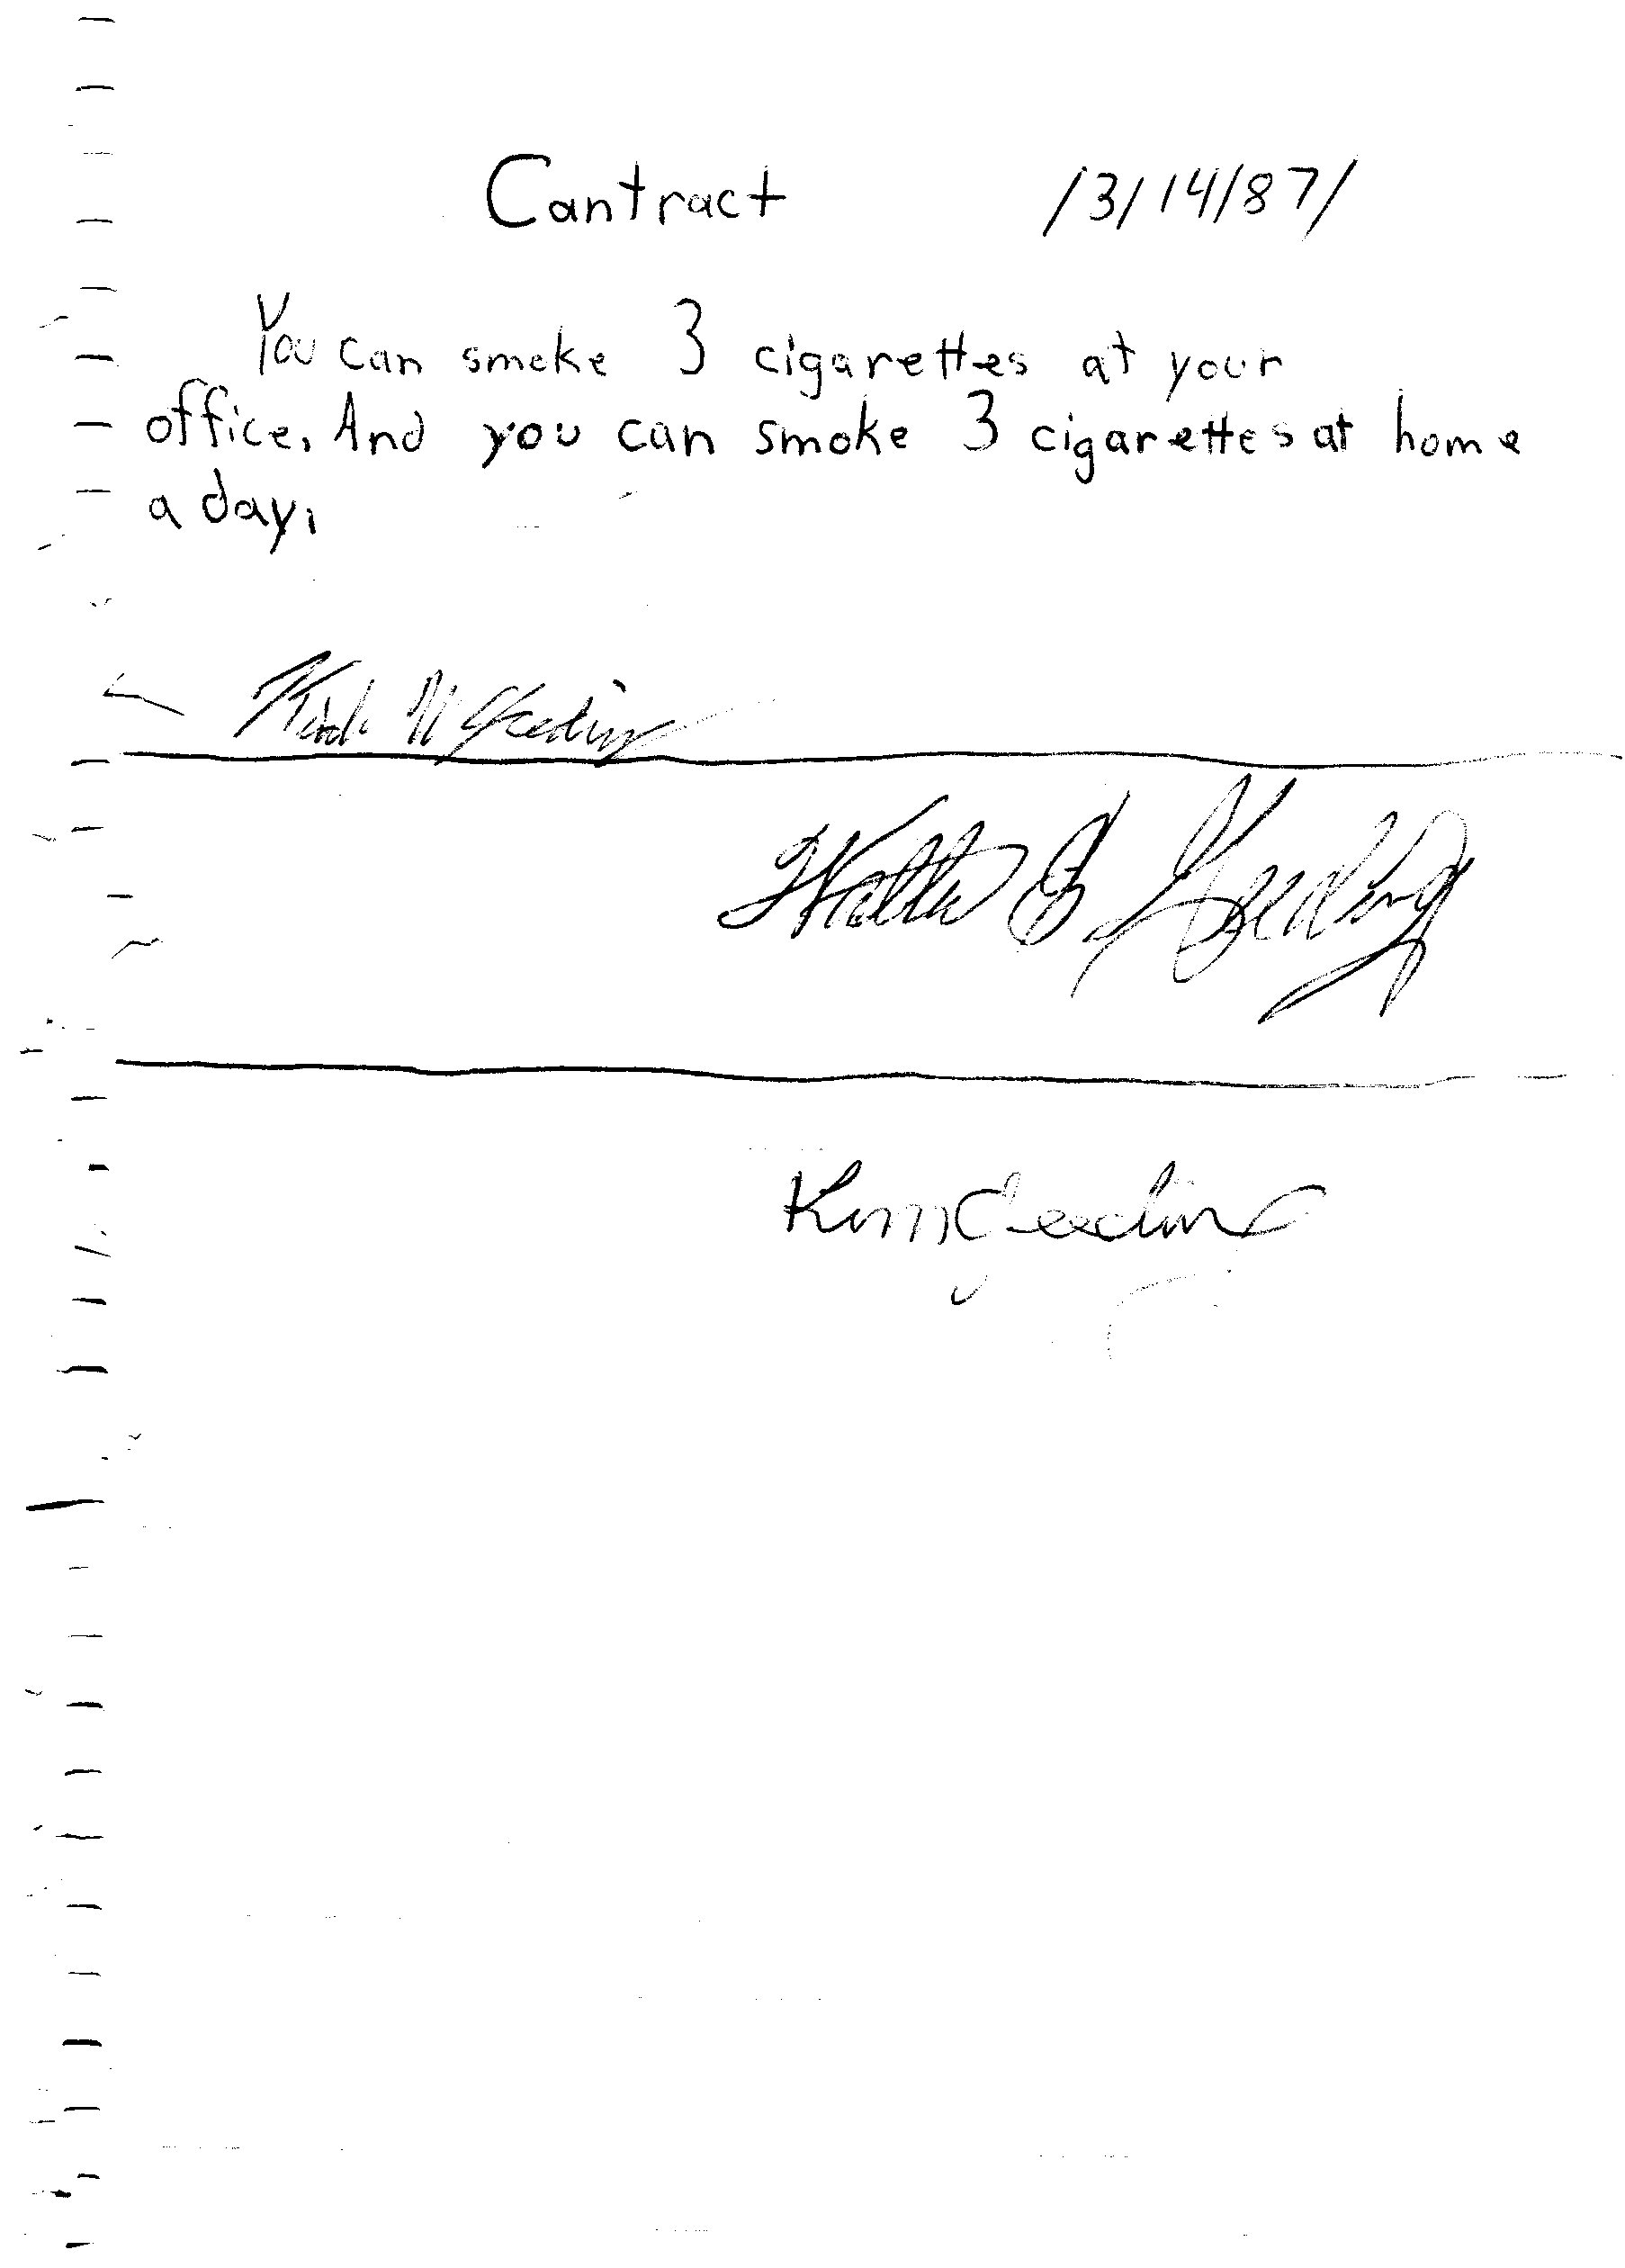 Contract /3/14/87/
You can smoke 3 cigarettes at your
office. And you can smoke 3 cigarettes at home
a day.
Kim